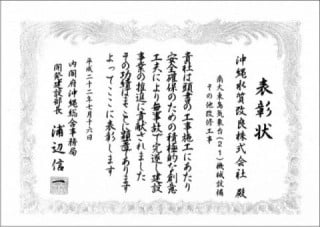 表彰状
沖縄水質改良株式会社 殿
南大東島気象台(21)機械設備
その他改修工事
貴社は頭書の工事施工にあたり
安全確保のための積極的な創意
工夫により無事故で完遂し建設
事業の推進に貢献されました
その功績はまことに顕著であります
よってここに表彰します
平成二十二年七月十六日
内閣府沖縄総合事務局
開発建設部長 浦辺信一